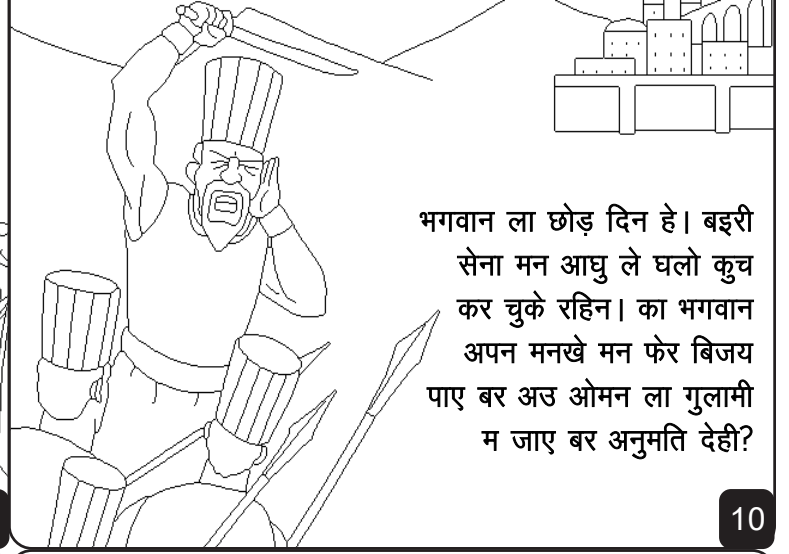 भगवान ला छोड़ दिन हे। बइरी
सेना मन आघु ले घलो कुच
कर चुके रहिन। का भगवान
अपन मनखे मन फेर बिजय
पाए बर अउ ओमन ला गुलामी
म जाए बर अनुमति देही?
10